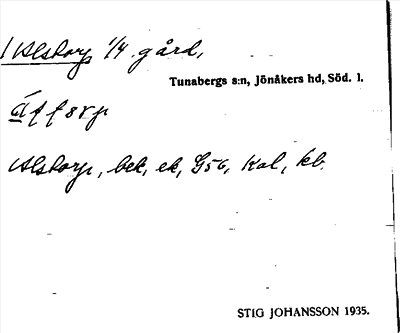 1 Alstorp 1/4 gård,
Tunabergs s:n, Jönåkers hd, Söd. l.
Alstorp, bek, ek, G56, Kal, kb.
STIG JOHANSSON 1935.